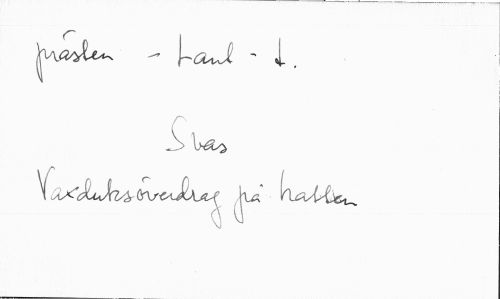 prästen - tant - t.
Svas
Vaxduksöverdrag på hatten